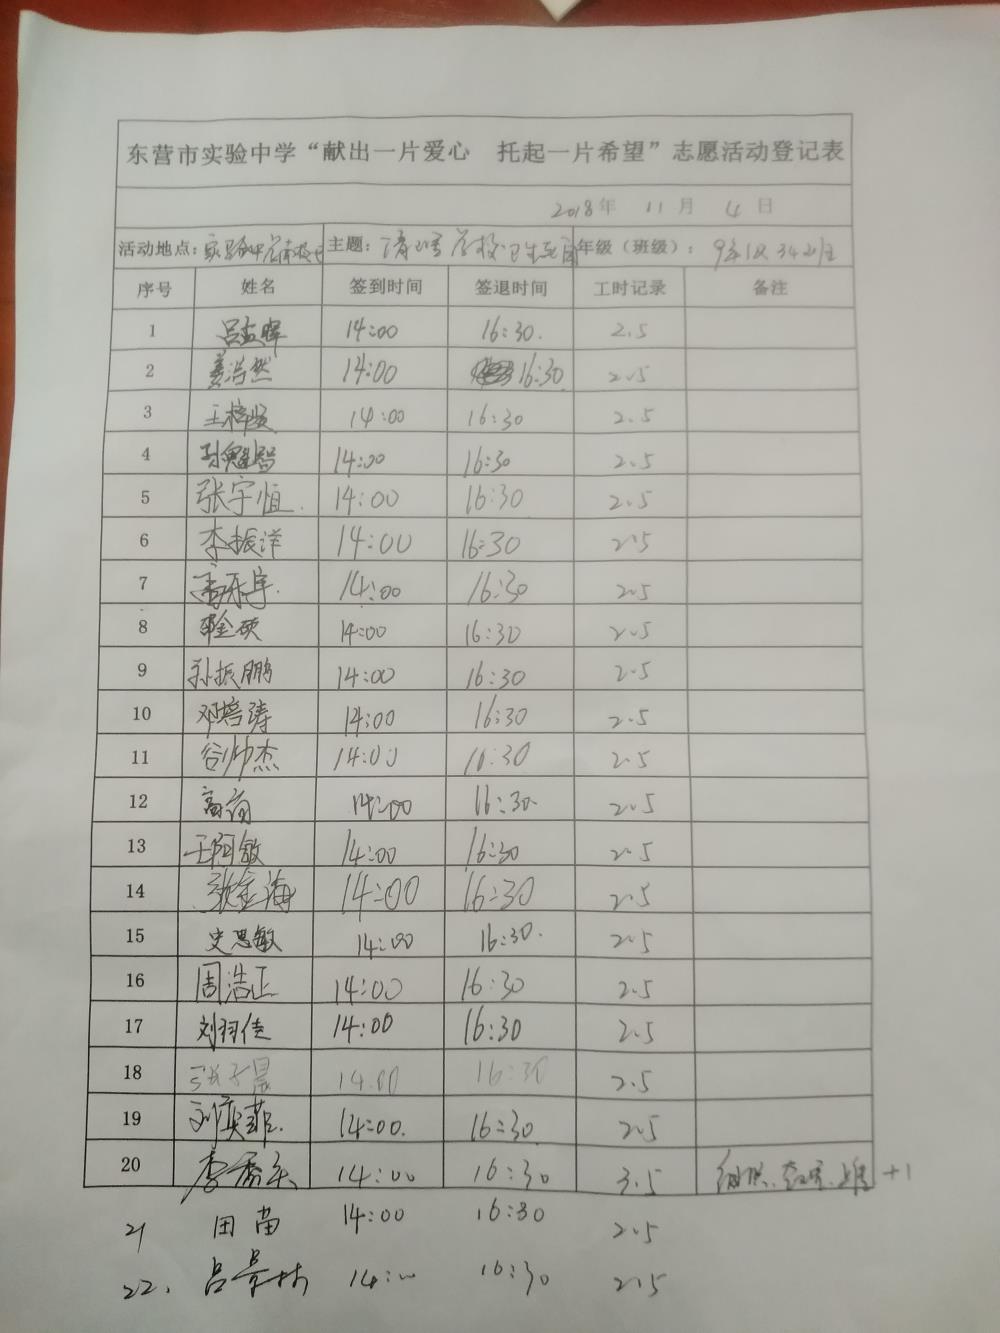 东营市实验中学“献出一片爱心 托起一片希望”志愿活动登记表
2018年 11月 4日
活动地点: 实验中学南校 主题: 清理学校卫生死角 年级（班级）: 9年级34班
序号 姓名 签到时间 签退时间 工时记录 备注
1 吕孟晖 14:00 16:30. 2.5
2 姜浩然 14:00 16:30 2.5
3 王 14:00 16:30 2.5
4 孙魁智 14:00 16:30 2.5
5 张宇恒. 14:00 16:30 2.5
6 李振洋 14:00 16:30 2.5
7 14:00 16:30 2.5
8 14:00 16:30 2.5
9 孙振鹏 14:00 16:30 2.5
10 邓培涛 14:00 16:30 2.5
11 谷帅杰 14:00 16:30 2.5
12 高菊 14:00 16:30. 2.5
13 王阿敏 14:00 16:30 2.5
14 张金海 14:00 16:30 2.5
15 史思敏 14:00 16:30. 2.5
16 周浩正 14:00 16:30 2.5
17 刘羽佳 14:00 16:30 2.5
18 张子晨 14:00 16:30 2.5
19 刘奕菲. 14:00. 16:30 2.5
20 李 14:00 16:30 3.5 +1
21 田苗 14:00 16:30 2.5
22. 吕景林 14:00 16:30 2.5